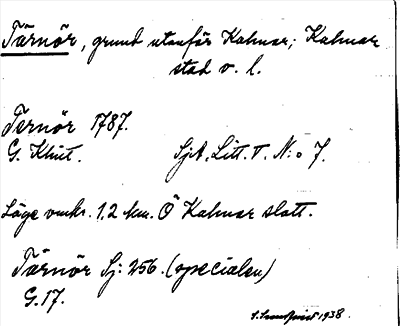 Tärnör, grund utanför Kalmar; Kalmar
stad v. l.
Ternör 1787.
G. Klint. SjA. Litt. T. N:o 7.
Läge omkr. 1.2 km. Ö Kalmar slott.
Tärnör Sj: 256. (specialen)
G. 17.
1938.